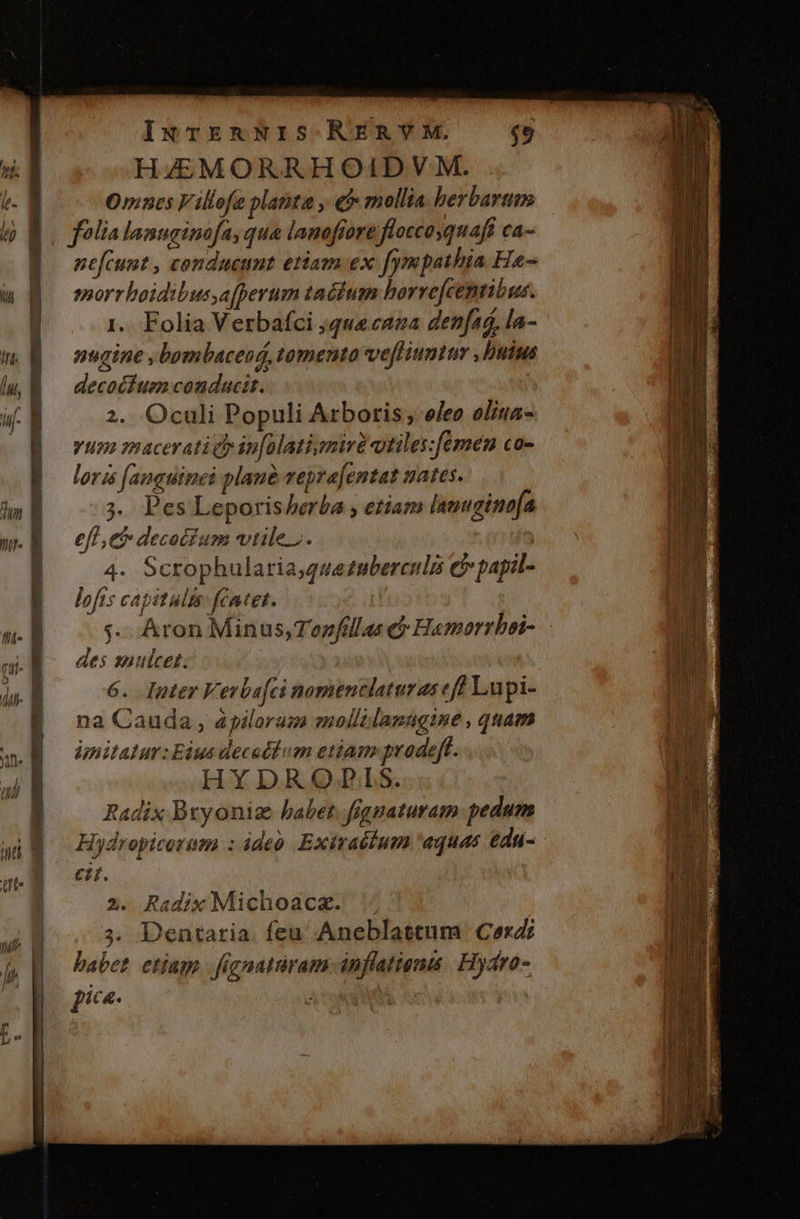 INTERNIS RERVM. 59
HÆMORRHOIDVM.
Omnes Villosæ plantæ, & mollia herbarum
folia lanuginosa, quæ lanositore flocco, quasi ca-
nescunt, conducunt etiam ex sympathia Hæ-
morrhoidibus, asperum tactum horrescentibus.
1. Folia Verbasci, quæ cana densaq́; la-
nugine, bombaceoq́; tomento vestiuntur, huius
decoctum conducit.
2. Oculi Populi Arboris, oleo oliua-
rum macerati & insolati, mirè vtiles: semen co-
loris sanguinei planè repræsentat nates.
3. Pes Leporis herba, etiam lanuginosa
est, & decoctum vtile.
4. Scrophularia, quæ tuberculis & papil-
losis capitulis scatet.
5. Aron Minus, Tonsillas & Hæmorrhoi-
des mulcet.
6. Inter Verbasci nomenclaturas est Lupi-
na Cauda, à pilorum molli lanugine, quam
imitatur: Eius decoctum etiam prodest.
HYDROPIS.
Radix Bryoniæ habet signaturam pedum
Hydropicorum: ideò Extractum aquas edu-
cit.
2. Radix Michoacæ.
3. Dentaria seu Aneblattum Cordi
habet etiam signaturam inflationis Hydro-
picæ.